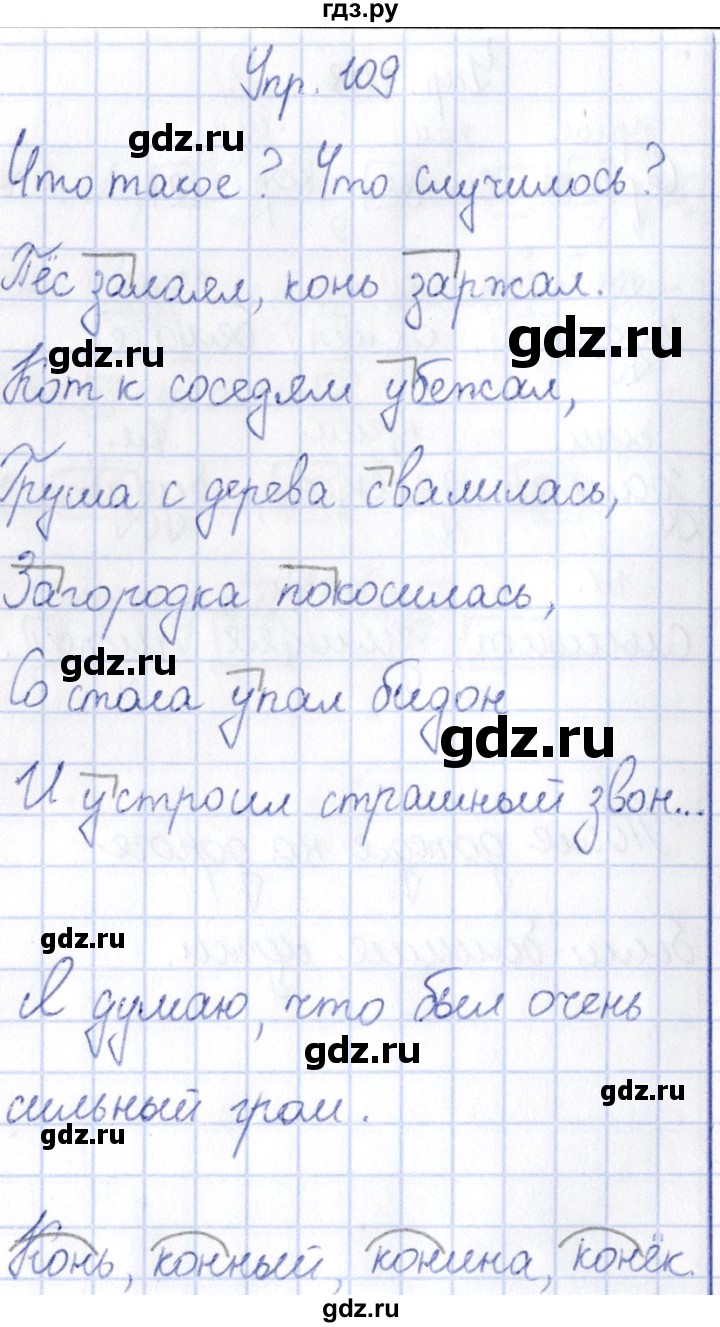 гдз.ру
Упр. 109
gdz.ru
Что такое? Что случилось?
Пёс залаял, конь заржал.
gdz.ru
gdz.ru
Кот к соседям убежал,
Груша с дерева свалилась,
Загородка покосилась,
gdz.ru
Со стола упал бидон
gdz.ru
И устроил страшный звон...
gdz.ru
Я думаю, что был очень
gdz.ru
gdz.ru
сильный гром.
gdz.ru
Конь, конный, конина, конёк.
gdz.ru